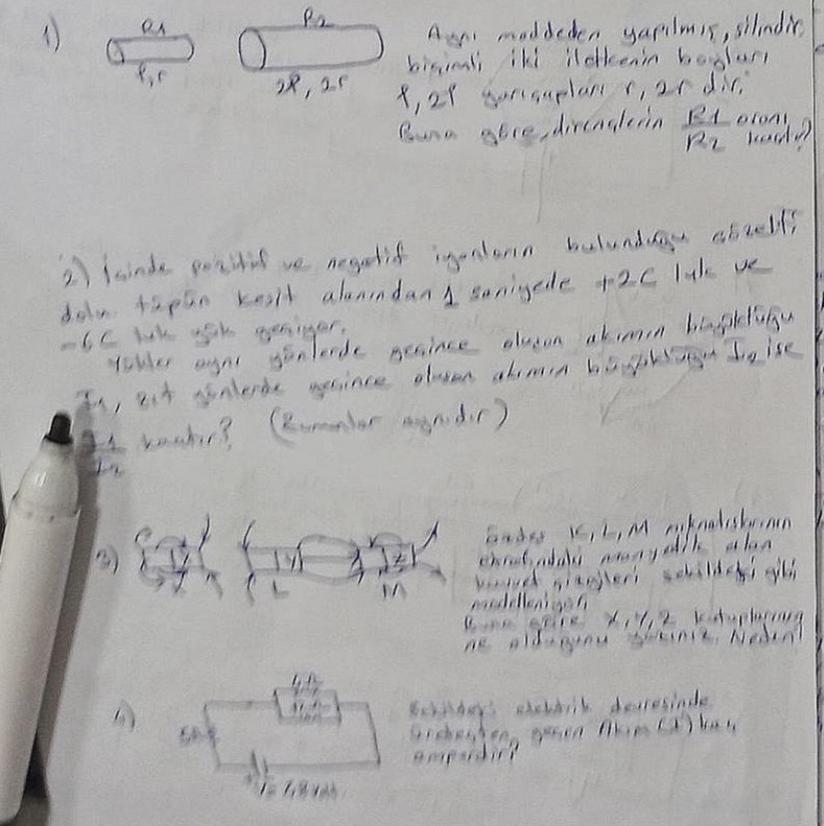 1)
R1
l, r
R2
2l, 2r
Aynı maddeden yapılmış, silindir
biçimli iki iletkenin boyları
l, 2l yarıçapları r, 2r dir.
Buna göre, dirençlerin R1/R2 oranı kaçtır?
2) İçinde pozitif ve negatif iyonların bulunduğu çözelti
dolu tüpün kesit alanından 1 saniyede +2C luk ve
-6C luk yük geçiyor.
Yükler aynı yönlerde geçince oluşan akımın büyüklüğü
I1, zıt yönlerde geçince oluşan akımın büyüklüğü I2 ise
I1/I2 kaçtır? (Zamanlar aynıdır)
3)
Y
Z
L
M
K, L, M mıknatıslarının
manyetik alan
kuvvet çizgileri şekildeki gibi
modelleniyor.
Buna göre X, Y, Z kutuplarının
ne olduğunu Neden?
4)
4Ω
Şekildeki elektrik devresinde
geçen Akım (I) kaç
amperdir?